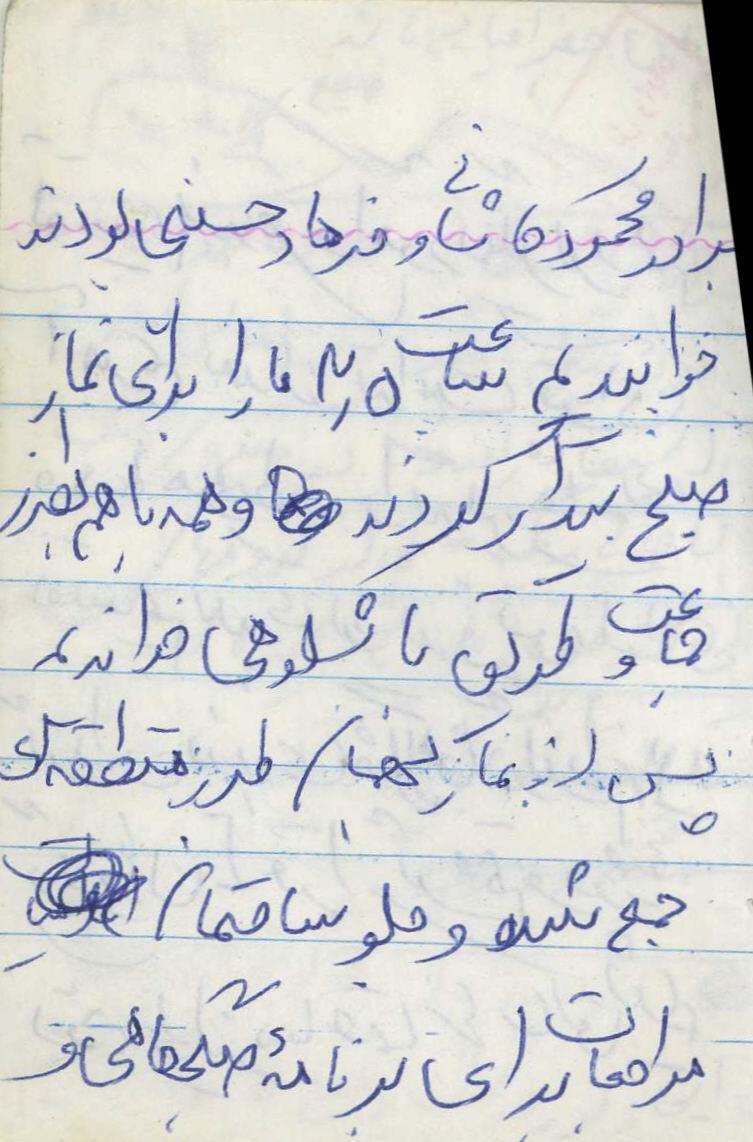 برادر محمود کاشانی و فرهاد حسنی بودند
خوابیدیم ساعت ۴٫۵ ما را برای نماز
صبح بیدار کردند و همه باهم نماز
جماعت و با شکوهی خواندیم
پس از نماز
جمع شده و جلو ساختمان
مراجعات برای برنامهٔ صبحگاهی و